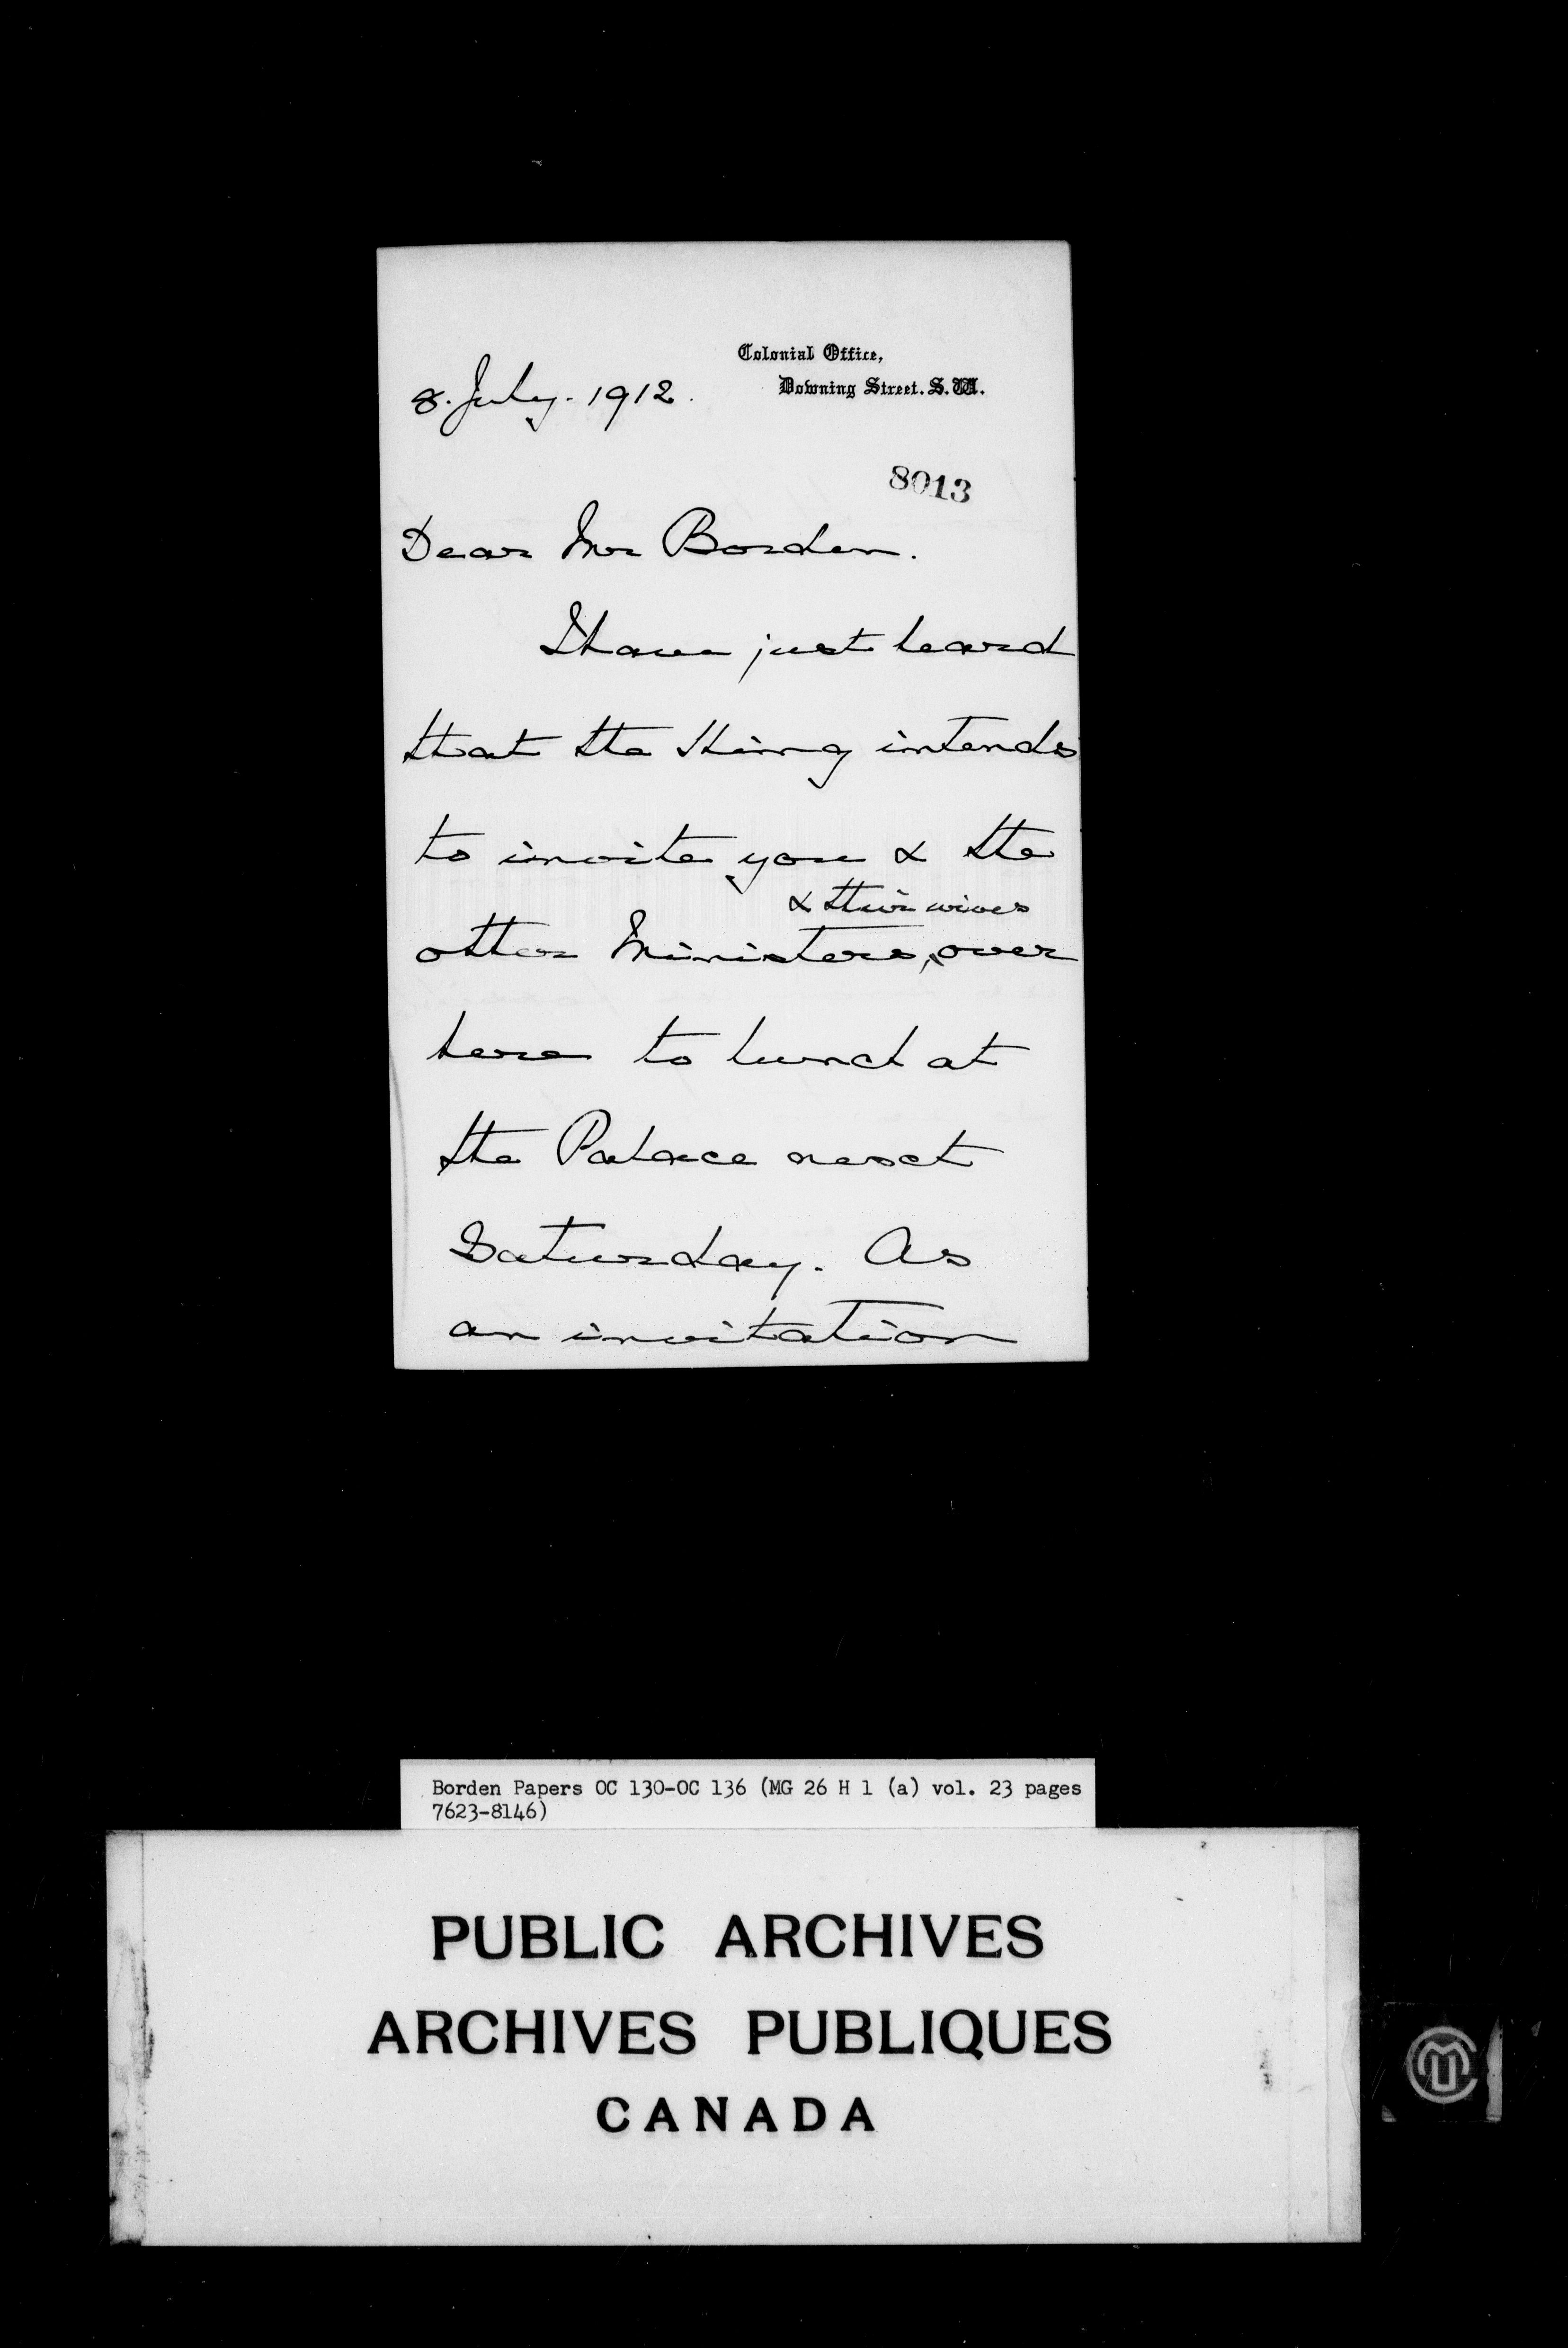 Colonial Office,
Downing Street. S.W.
8. July. 1912.
8013
Dear Mr Borden.
I have just heard
that the King intends
to invite you & the
& their wives
other Ministers, over
here to lunch at
the Palace next
Saturday. As
an invitation
Borden Papers OC 130-OC 136 (MG 26 H 1 (a) vol. 23 pages
7623-8146)
PUBLIC ARCHIVES
ARCHIVES PUBLIQUES
CANADA